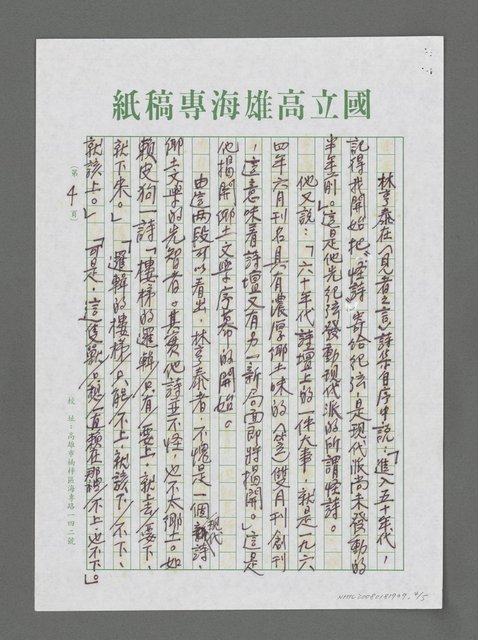 國立高雄海專稿紙
林亨泰在《見者之言》詩集自序中說：「進入五十年代，
記得我開始把『怪詩』寄給紀弦，是現代派尚未發動的
半年前。」這是他先紀弦發動現代派的所謂怪詩。
他又說：「六十年代詩壇上的一件大事，就是一九六
四年六月刊名具有濃厚鄉土味的《笠》雙月刊創刊
，這意味着詩壇又有另一新局面即將揭開。」這是
他揭開鄉土文學序幕的開始。
由這兩段可以看出，林亨泰者，不愧是一個現代詩、
鄉土文學的先智者。其實他詩並不怪，也不太鄉土。如
賴皮狗一詩「樓梯的邏輯只有要上，就去要下，
就下來。」「邏輯的樓梯，只能不上，就該下，不下，
就該上。」「可是，這隻獸，只想一直賴在那裡不上也不下」。
（第 4 頁）
校 址：高雄市楠梓區海專路一四二號
NMTL20080181909, 4/5